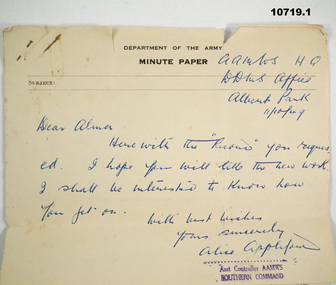 10719.1
DEPARTMENT OF THE ARMY
MINUTE PAPER
SUBJECT:
AAMWS H Q
DDMS Office
Albert Park
Dear Alma
Herewith the "Record" you reques-
ed. I hope you will like the new work.
I shall be interested to know how
you get on.
With best wishes
Yours sincerely
Alice Appleford
Asst Controller AAMWS
SOUTHERN COMMAND